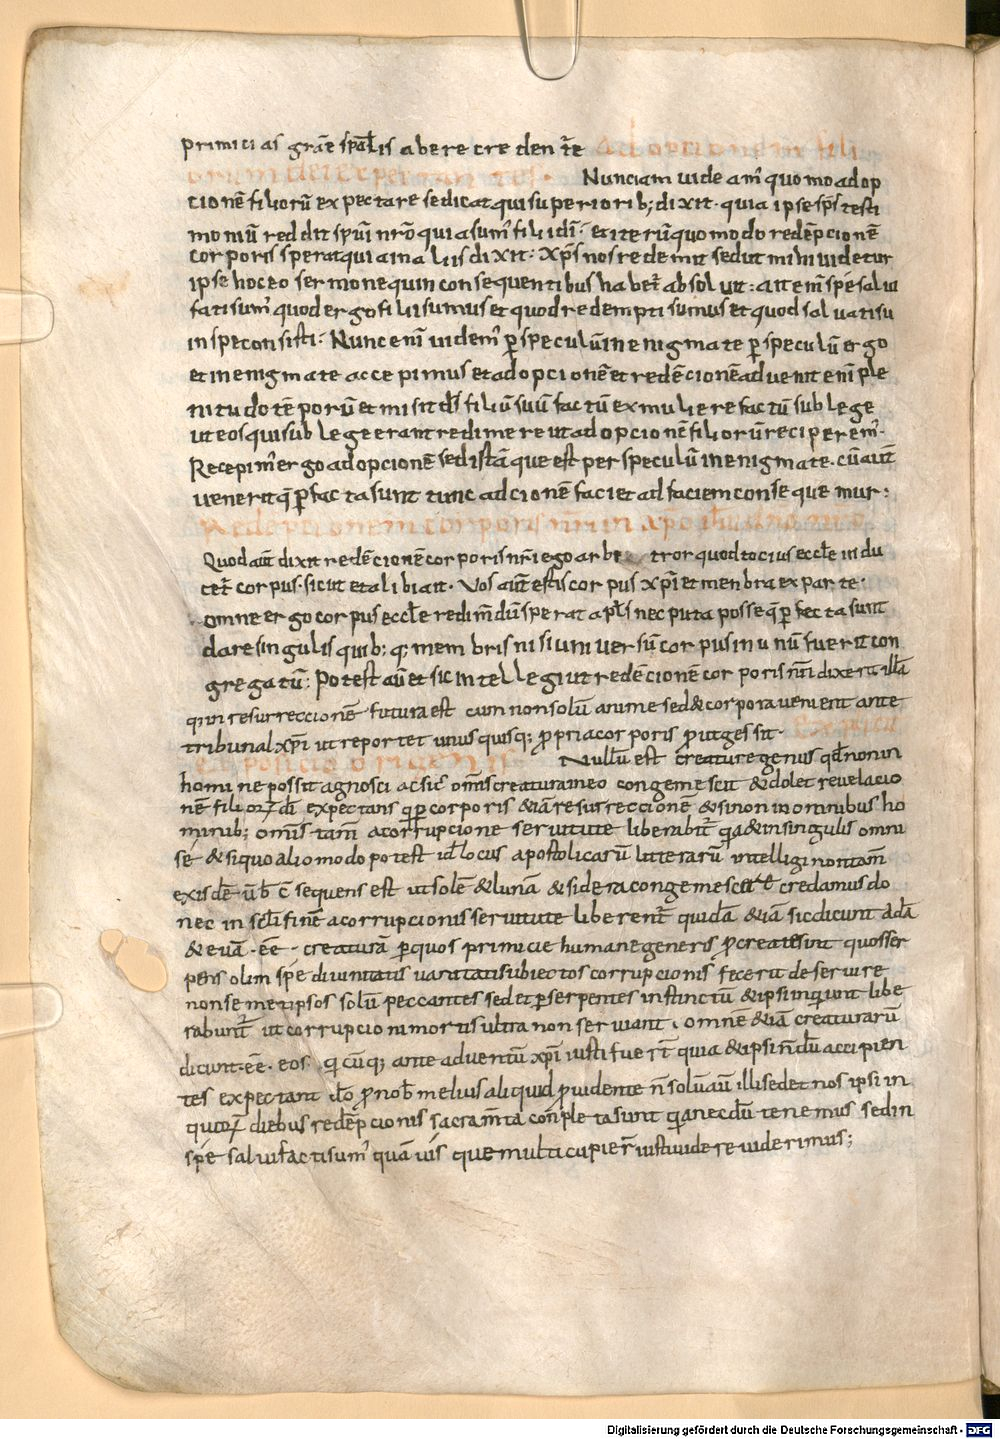 primicias grā̄e sp̄al̄is abere credente Adopcionem fili
orum dei expectantes.
Nunc iam uideam̄ quomo adop
cionē filiorū expectare se dicat qui superiorib; dixit. quia ipse sp̄s testi
moniū reddit sp̄ui nr̄o quia sum̄ filii dī. et iterū quomodo redēpcionē
corporis sperat qui in aliis dixit: Xp̄s nos redemit sed ut mihi uidetur
ipse hoc eo sermone qui in consequentibus habet̄ absoluit: ait enī spe salui
facti sum̄ quod ergo filii sumus et quod redempti sumus et quod saluati su
in spe consisti: Nunc enī uidem̄ p̄ speculū in enigmate p̄ speculū ergo
et in enigmate accepimus et adopcionē et redēcionē aduenit enī ple
nitudo tēporū et misit dī filiū suū factū ex muliere factū sub lege
ut eos qui sub lege erant redimere ut adopcionē filiorū reciperem̄.
Recepim̄ ergo adopcionē sed istā que est per speculū in enigmate. cū aūt
uenerit q̄ p̄facta sunt tunc adcionē faciet ad faciem consequemur:
Redēpcionem corporis nr̄i in xp̄o
Quod aūt dixit redēcionē corporis nr̄i ego arbi tror quod tocius eccl̄e indu
cet̄ corpus. sicut et alibi ait. Vos aūt estis corpus xp̄i et menbra ex parte.
omne ergo corpus eccl̄e redimēdū sperat ap̄ls nec puta posse q̄ p̄fecta sunt
dare singulis quib;q; membris nisi uniuersū corpus in unū fuerit con
gregatū: Potest aūt et sic intellegi ut redēcionē corporis nr̄i dixerit illā
q̄ in resurreccionē futura est cum non solū anime sed & corpora uenient ante
tribunal xp̄i ut reportet unusquisq; p̄pria corporis p̄ut gessit. Explicit
exposicio origenis
Nullū est creature genus qd̄ non in
homine possit agnosci ac sic om̄is creatura in eo congemescit & dolet reuelacio
nē filioꝝ dī expectans q̄ p̄ corporis & iā resurreccionē & si non in omnibus ho
minib; om̄is tam̄ a corrupcione seruitute liberabit̄ q̄a & in singulis omni
sē & si quo alio modo potest id̄ locus apostolicarū litterarū intelligi non tam̄
ex isdē ūb̄ c̄ sequens est ut solē & lunā & sidera congemescere credamus do
nec in sc̄li finē a corrupcionis seruitute liberent̄ quidā & iā sic dicunt adā
& euā. ēe. creaturā p̄ quos primicie humane generis p̄create sint quos ser
pens olim spe diuinitatis uanitati subiectos corrupcionis fecerit deseruire
non semetipsos solū peccantes sed et p̄ serpentes instinctū & ipsi inq̄unt libe
rabunt̄ ut corrupcioni mortis ultra non seruiant. omnē & iā creaturarū
dicunt. ēe. eos. q̄cūq; ante aduentū xp̄i iusti fuer̄t quia & ipsi nōdū accipien
tes expectant dō p̄ nob̄ melius aliquid p̄uidente n̄ solū aūt illi sed et nos ipsi in
quoꝝ diebus redēpcionis sacram̄ta conpleta sunt q̄ia necdū tenemus sed in
spe salui facti sum̄ quā uīs que multi cupier̄ iusti uidere uiderimus;
Digitalisierung gefördert durch die Deutsche Forschungsgemeinschaft - DFG